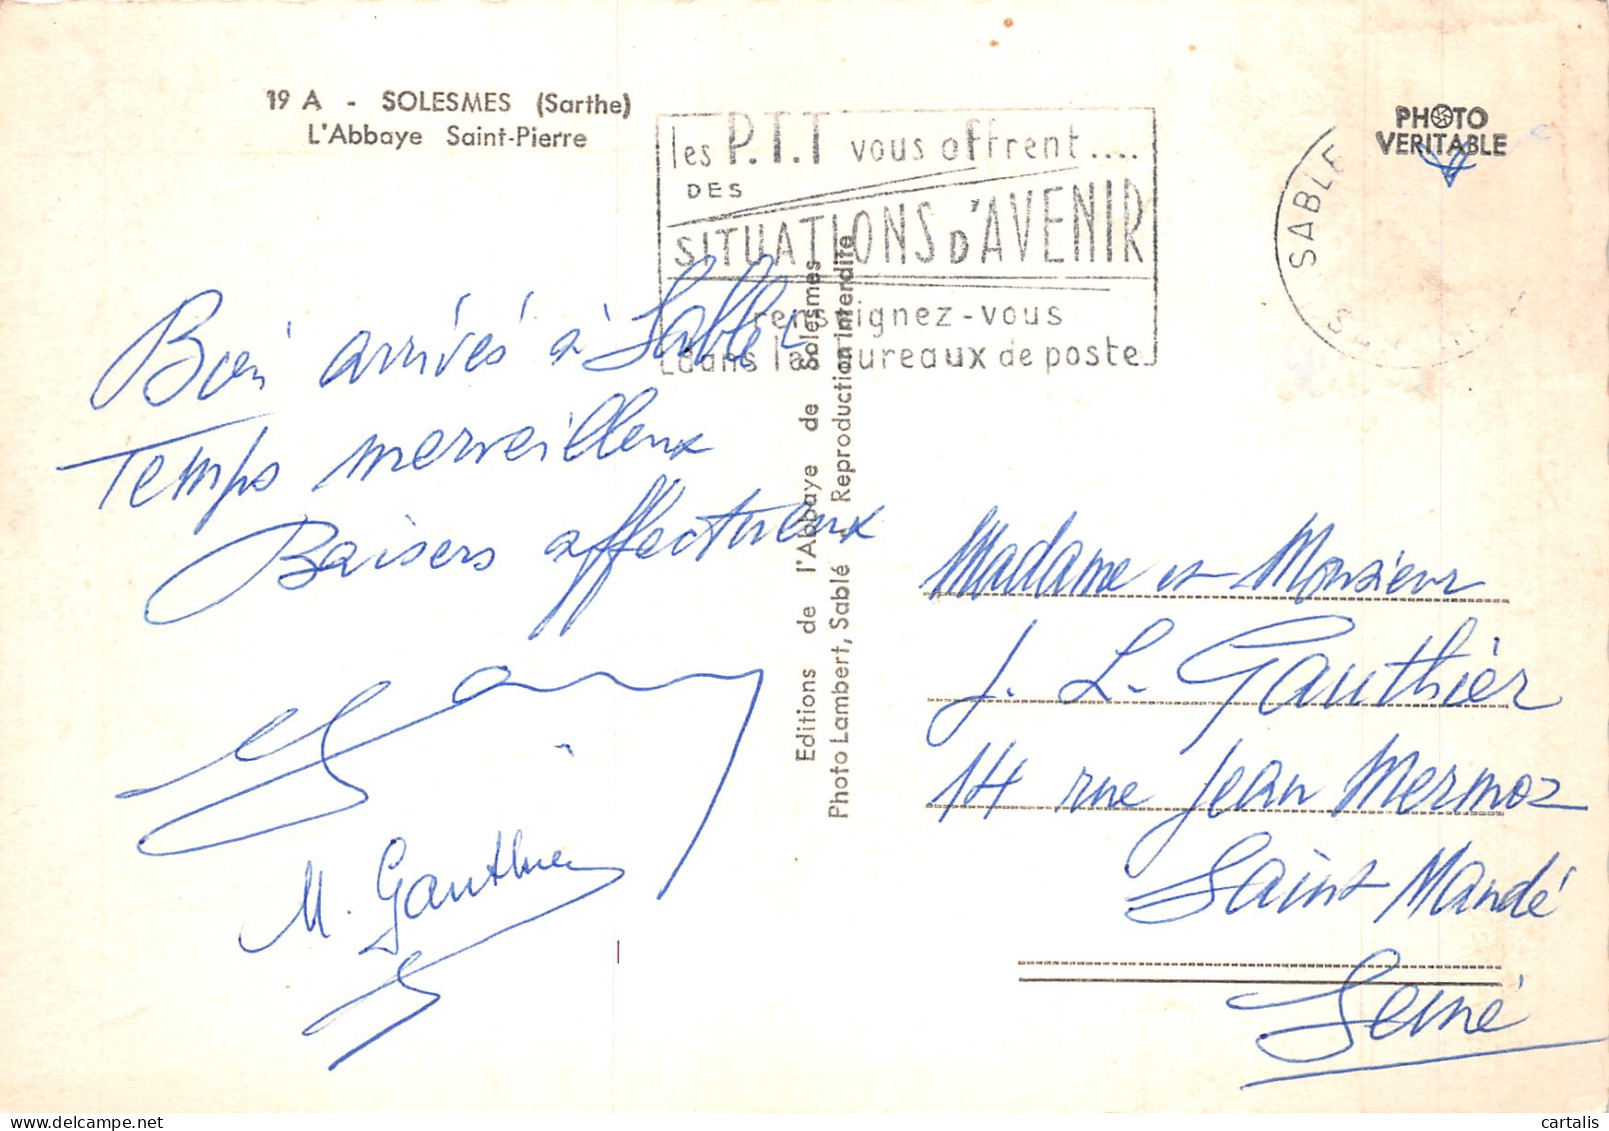 19 A - SOLESMES (Sarthe)
L'Abbaye Saint-Pierre
les P.T.T vous offrent....
DES
SITUATIONS D'AVENIR
renseignez-vous
dans les bureaux de poste
PHOTO
VERITABLE
SABLE
Bon arrivés à Sablé
Temps merveilleux
Baisers affectueux
M. Gauthier
Editions de l'Abbaye de Solesmes
Photo Lambert, Sablé Reproduction interdite
Madame et Monsieur
J. L. Gauthier
14 rue Jean Mermoz
Saint Mandé
Seine
delcampe.net
cartalis